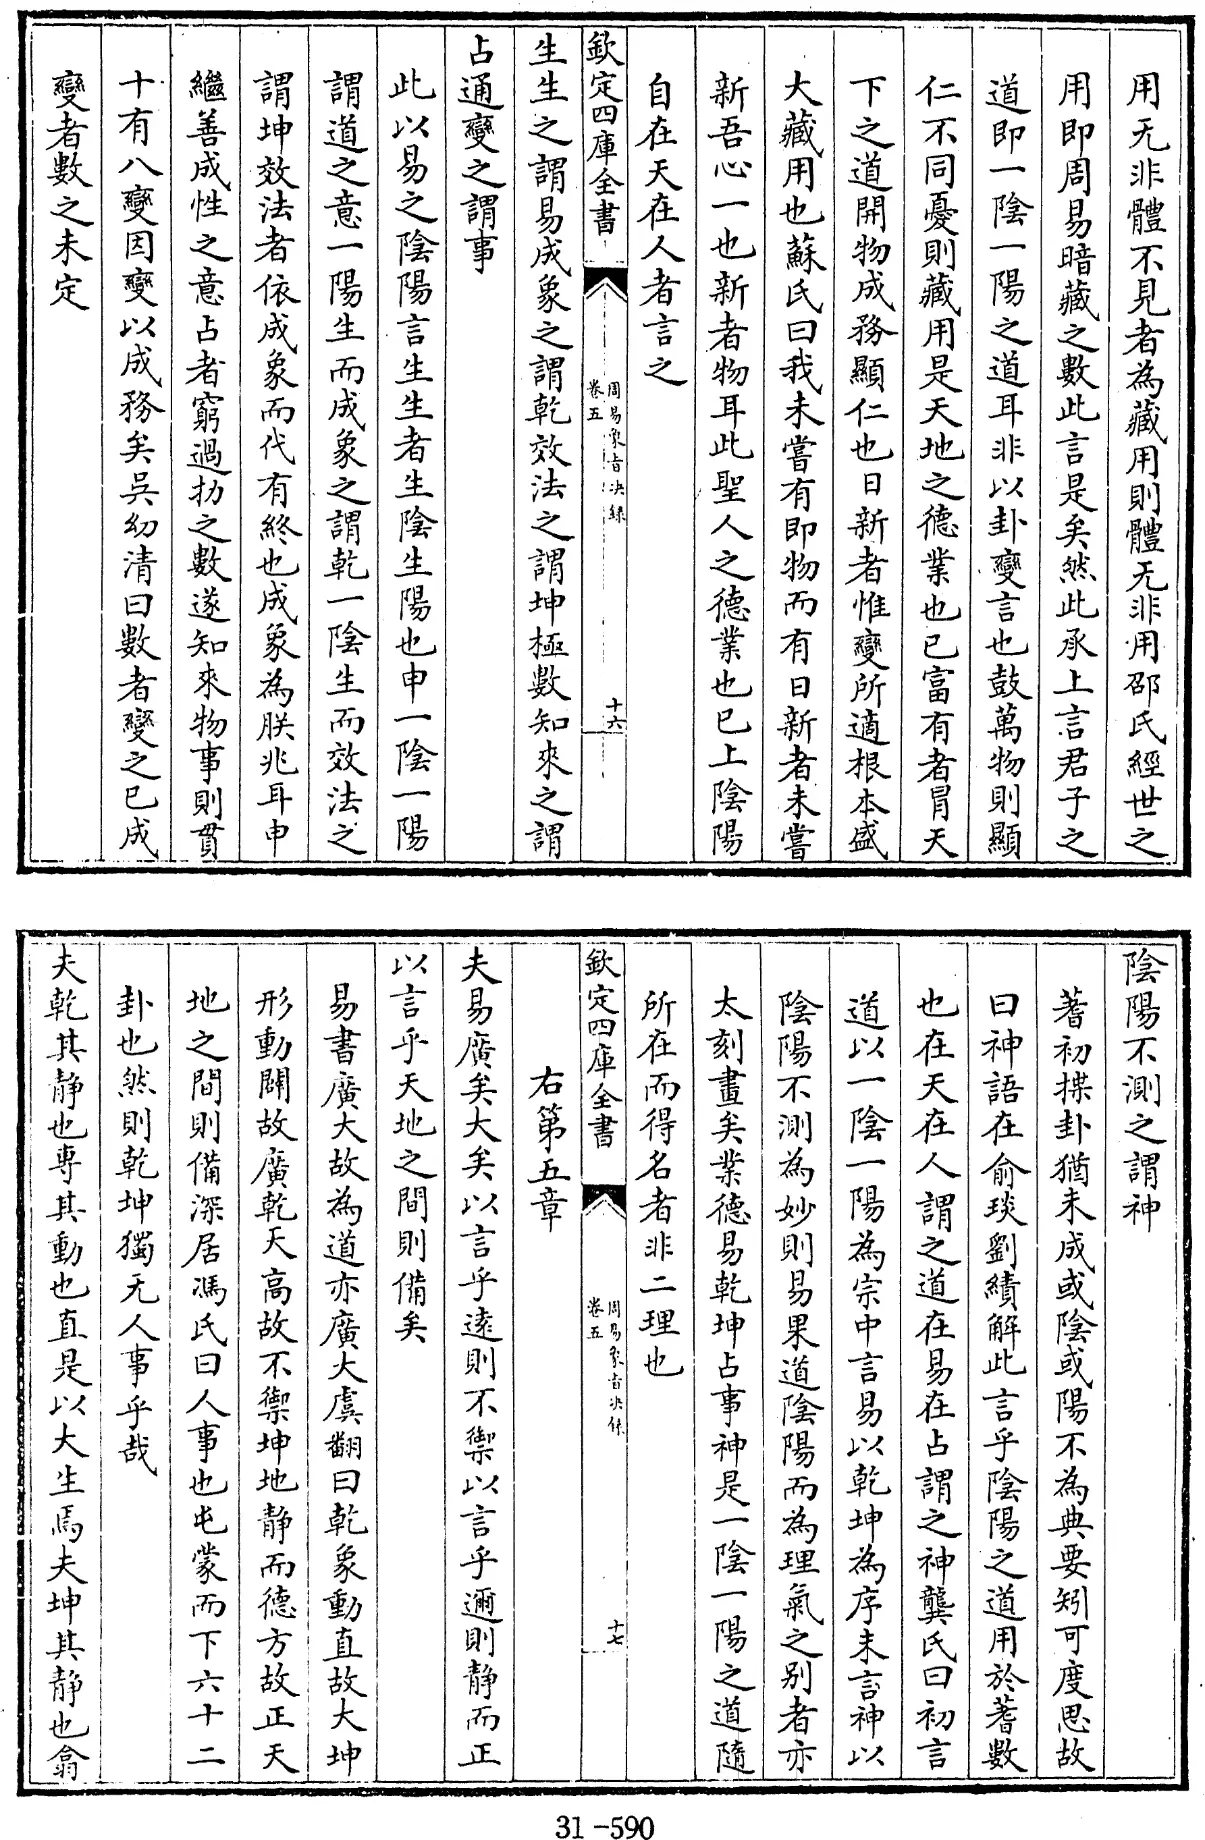 用无非體不見者為藏用則體无非用邵氏經世之
用即周易暗藏之數此言是矣然此承上言君子之
道即一陰一陽之道耳非以卦變言也鼓萬物則顯
仁不同憂則藏用是天地之德業也已富有者冐天
下之道開物成務顯仁也日新者惟變所適根本盛
大藏用也蘇氏曰我未嘗有即物而有日新者未嘗
新吾心一也新者物耳此聖人之德業也已上陰陽
自在天在人者言之
欽定四庫全書
周易象旨決録
卷五
十六
生生之謂易成象之謂乾效法之謂坤極數知來之謂
占通變之謂事
此以易之陰陽言生生者生陰生陽也申一陰一陽
謂道之意一陽生而成象之謂乾一陰生而效法之
謂坤效法者依成象而代有終也成象為朕兆耳申
繼善成性之意占者窮過扐之數遂知來物事則貫
十有八變因變以成務矣吳幼清曰數者變之已成
變者數之未定
陰陽不測之謂神
蓍初揲卦猶未成或陰或陽不為典要矧可度思故
曰神語在俞琰劉績解此言乎陰陽之道用於蓍數
也在天在人謂之道在易在占謂之神龔氏曰初言
道以一陰一陽為宗中言易以乾坤為序末言神以
陰陽不測為妙則易果道陰陽而為理氣之别者亦
太刻畫矣業德易乾坤占事神是一陰一陽之道隨
所在而得名者非二理也
欽定四庫全書
周易象旨決録
卷五
十七
右第五章
夫易廣矣大矣以言乎遠則不禦以言乎邇則静而正
以言乎天地之間則備矣
易書廣大故為道亦廣大虞翻曰乾象動直故大坤
形動闢故廣乾天高故不禦坤地静而德方故正天
地之間則備深居馮氏曰人事也屯蒙而下六十二
卦也然則乾坤獨无人事乎哉
夫乾其静也専其動也直是以大生焉夫坤其静也翕
31-590